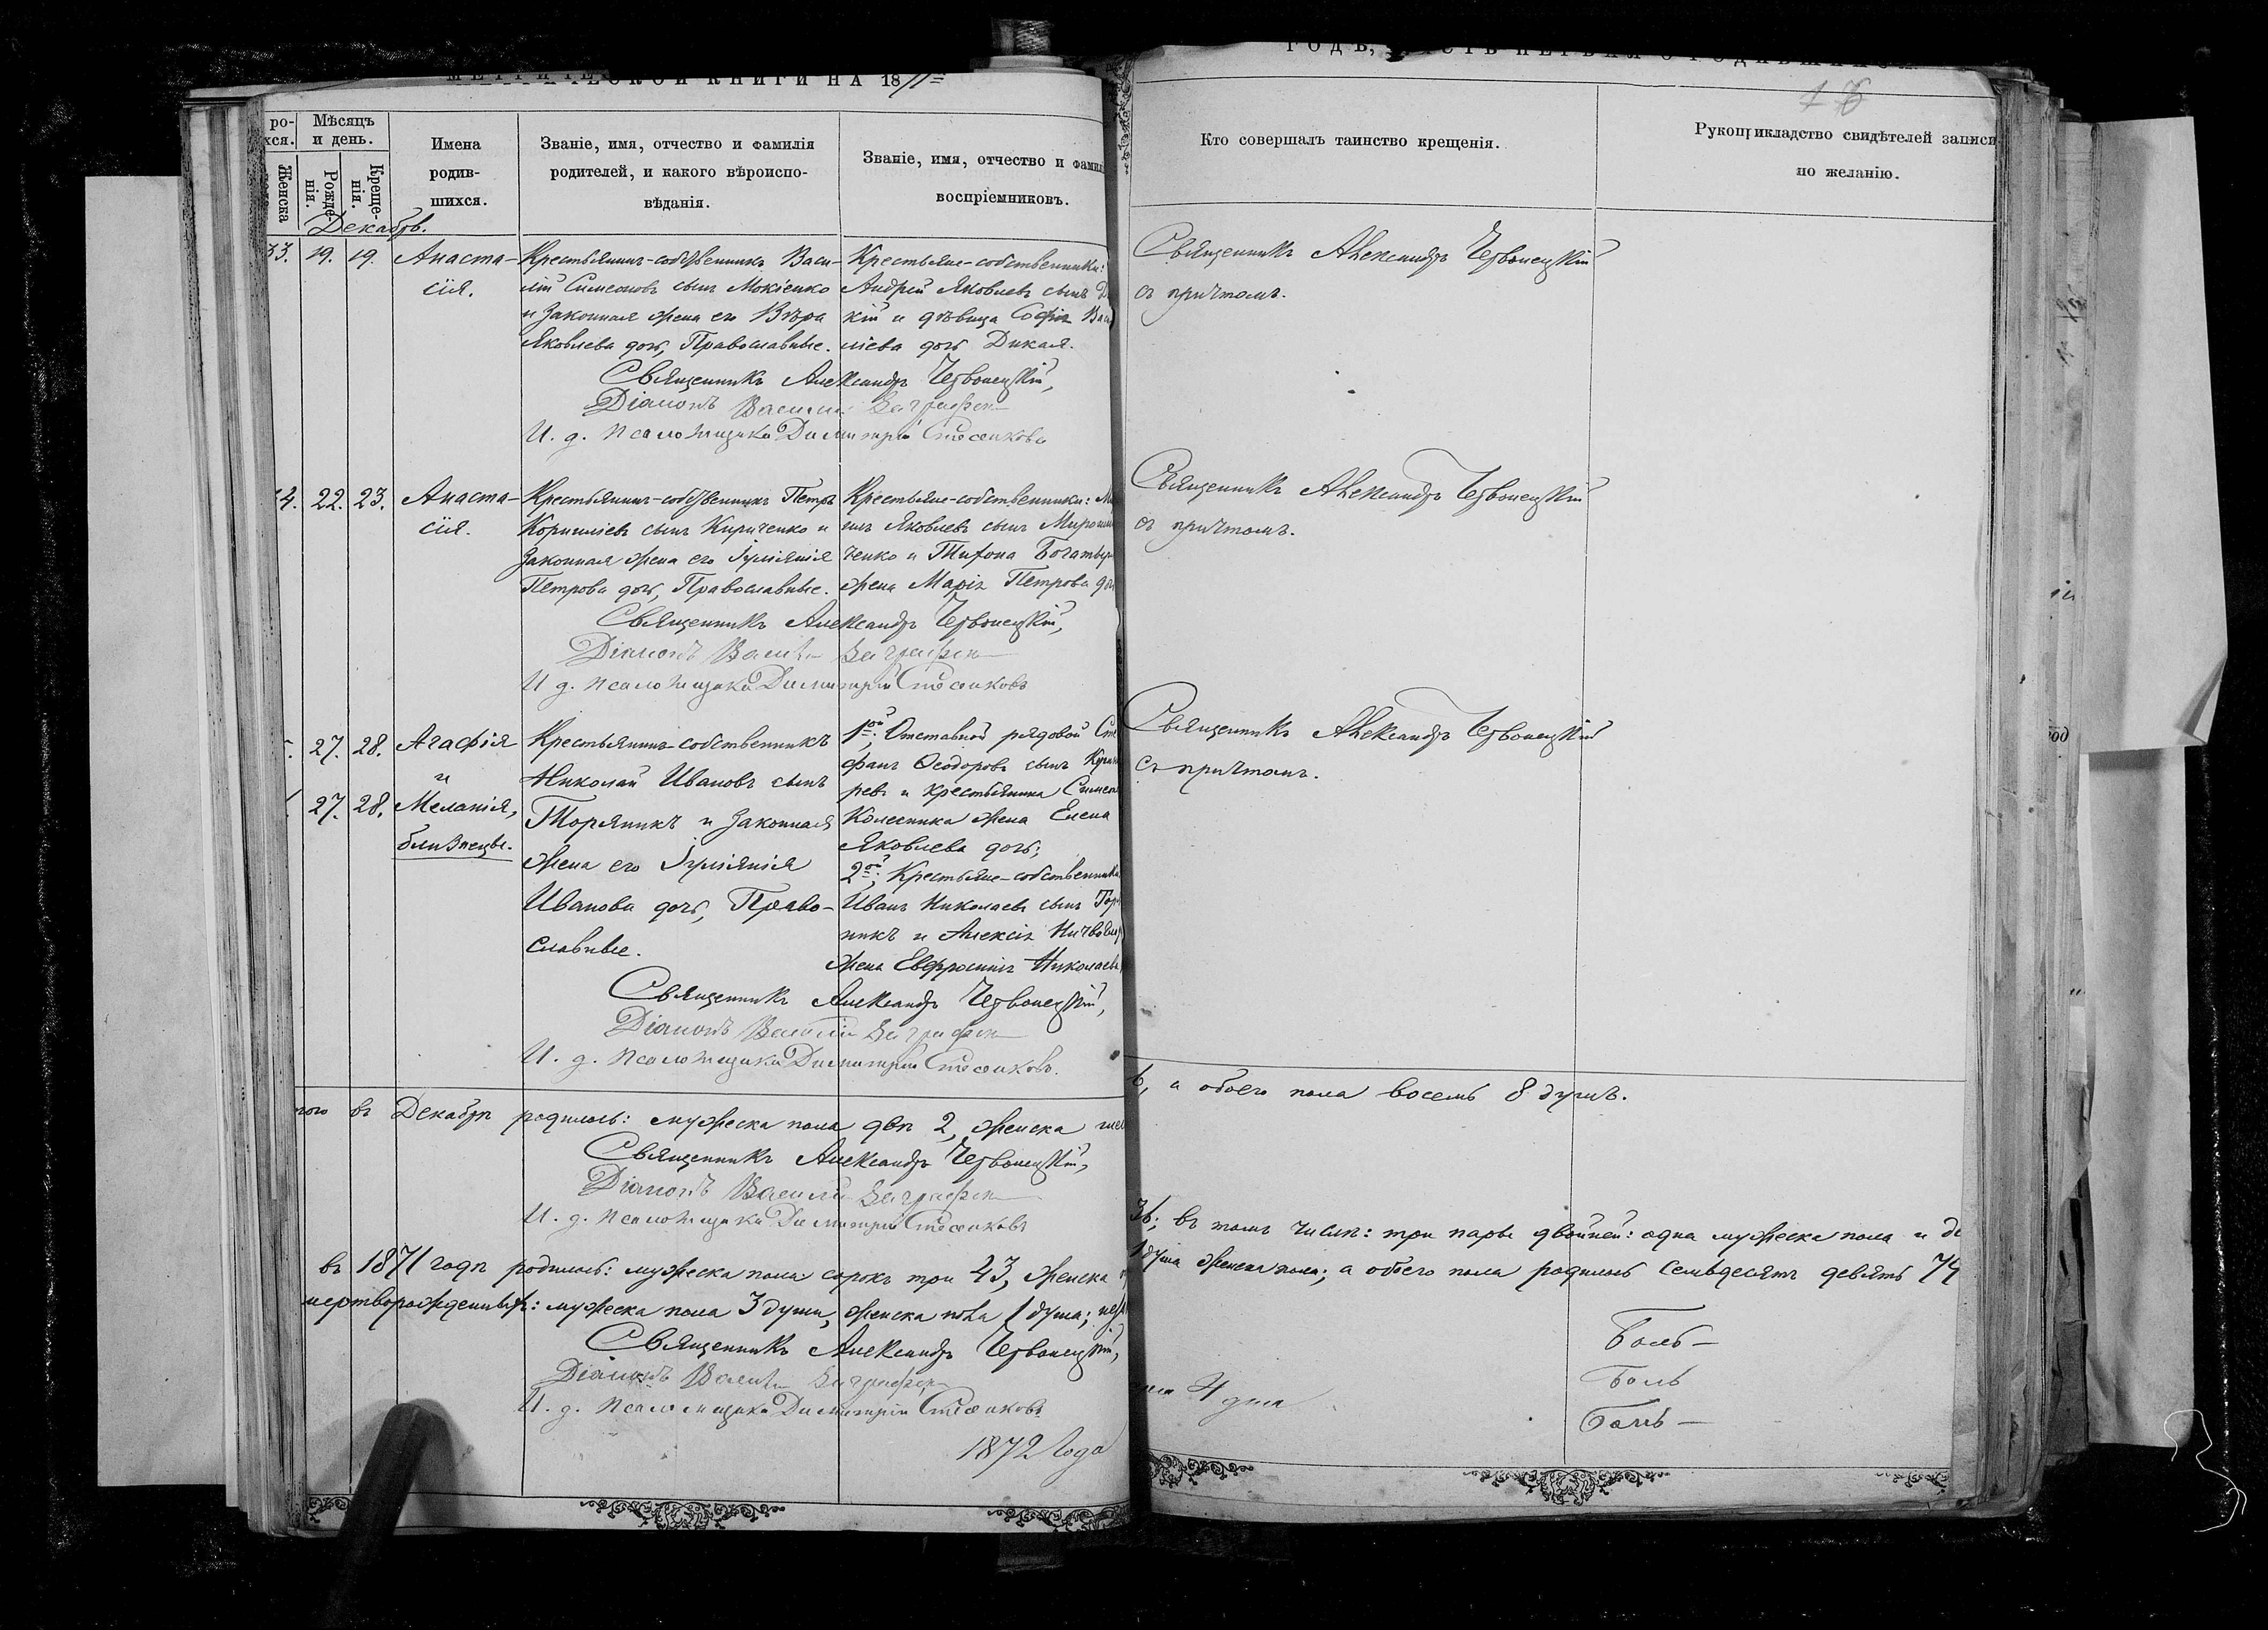 МЕТРИЧЕСКОЙ КНИГИ НА 1871
ро-
хся.
Мѣсяцъ
и день.
Женска
Рожде-
нія.
Креще-
нія.
Имена
родив-
шихся.
Званіе, имя, отчество и фамилія
родителей, и какого вѣроиспо-
вѣданія.
Званіе, имя, отчество и фамил
воспріемниковъ.
Декабрь.
33. 19. 19. Анаста-
сія.
Крестьянинъ-собственникъ Васи-
лій Симеоновъ сынъ Мокіенко
и законная жена его Вѣра
Яковлева дочь, Православные.
Крестьяне-собственники:
Андрей Яковлевъ сынъ Д
кій и дѣвица Софія Васи
ліева дочь Дикая.
Священникъ Александръ Червонецкій,
Діаконъ Василій
И. д. псаломщика Димитрій
4. 22. 23. Анаста-
сія.
Крестьянинъ-собственникъ Петръ
Корниліевъ сынъ Кириченко и
законная жена его Іуліянія
Петрова дочь, Православные.
Крестьяне-собственники: М
илъ Яковлевъ сынъ Мирошни
ченко и Тихона Богатыр
жена Марія Петрова доч
Священникъ Александръ Червонецкій,
Діаконъ Василій
И. д. псаломщика Димитрій
27. 28. Агафія
и
27. 28. Меланія,
близнецы.
Крестьянинъ-собственникъ
Николай Ивановъ сынъ
Горяникъ и законная
жена его Іуліянія
Иванова дочь, Право-
славные.
1ой: Отставной рядовой Сте
фанъ Ѳеодоровъ сынъ
ревъ и крестьянина Симео
Колесника жена Елена
Яковлева дочь;
2ой: Крестьяне-собственники
Иванъ Николаевъ сынъ Гор
никъ и Алексія
жена Евфросинія Николаева
Священникъ Александръ Червонецкій,
Діаконъ Василій
И. д. псаломщика Димитрій
того въ Декабрѣ родилось: мужеска пола двѣ 2, женска ше
Священникъ Александръ Червонецкій,
Діаконъ Василій
И. д. псаломщика Димитрій
въ 1871 годѣ родилось: мужеска пола сорокъ три 43, женска
мертворожденныхъ: мужеска пола 3 души, женска пола 1 душа;
Священникъ Александръ Червонецкій,
Діаконъ Василій
И. д. псаломщика Димитрій
1872 Года
ГОДЪ, ЧАСТЬ ПЕРВАЯ О РОДИВШИХСЯ
Кто совершалъ таинство крещенія.
Рукоприкладство свидѣтелей записи
по желанію.
Священникъ Александръ Червонецкій
съ причтомъ.
Священникъ Александръ Червонецкій
съ причтомъ.
Священникъ Александръ Червонецкій
съ причтомъ.
6, а обоего пола восемь 8 душъ.
36; въ томъ числѣ: три пары двойней: одна мужеска пола и дв
1 душа женска пола; а обоего пола родилось семьдесятъ девять 79
4 дня